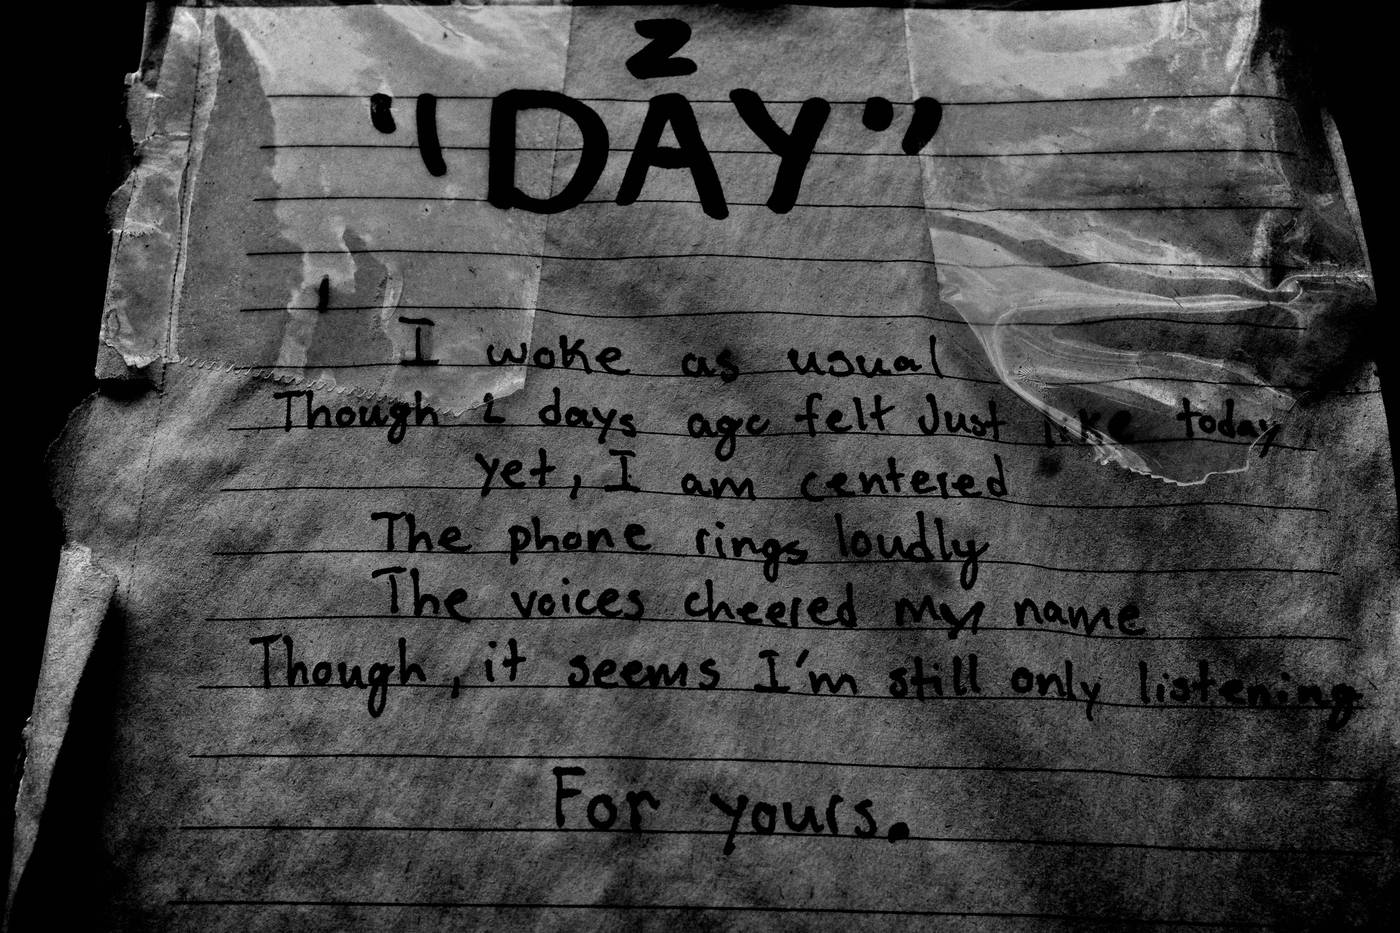 2
"DAY"
I woke as usual
Though 2 days ago felt Just like today
yet, I am centered
The phone rings loudly
The voices cheered my name
Though, it seems I'm still only listening
For yours.